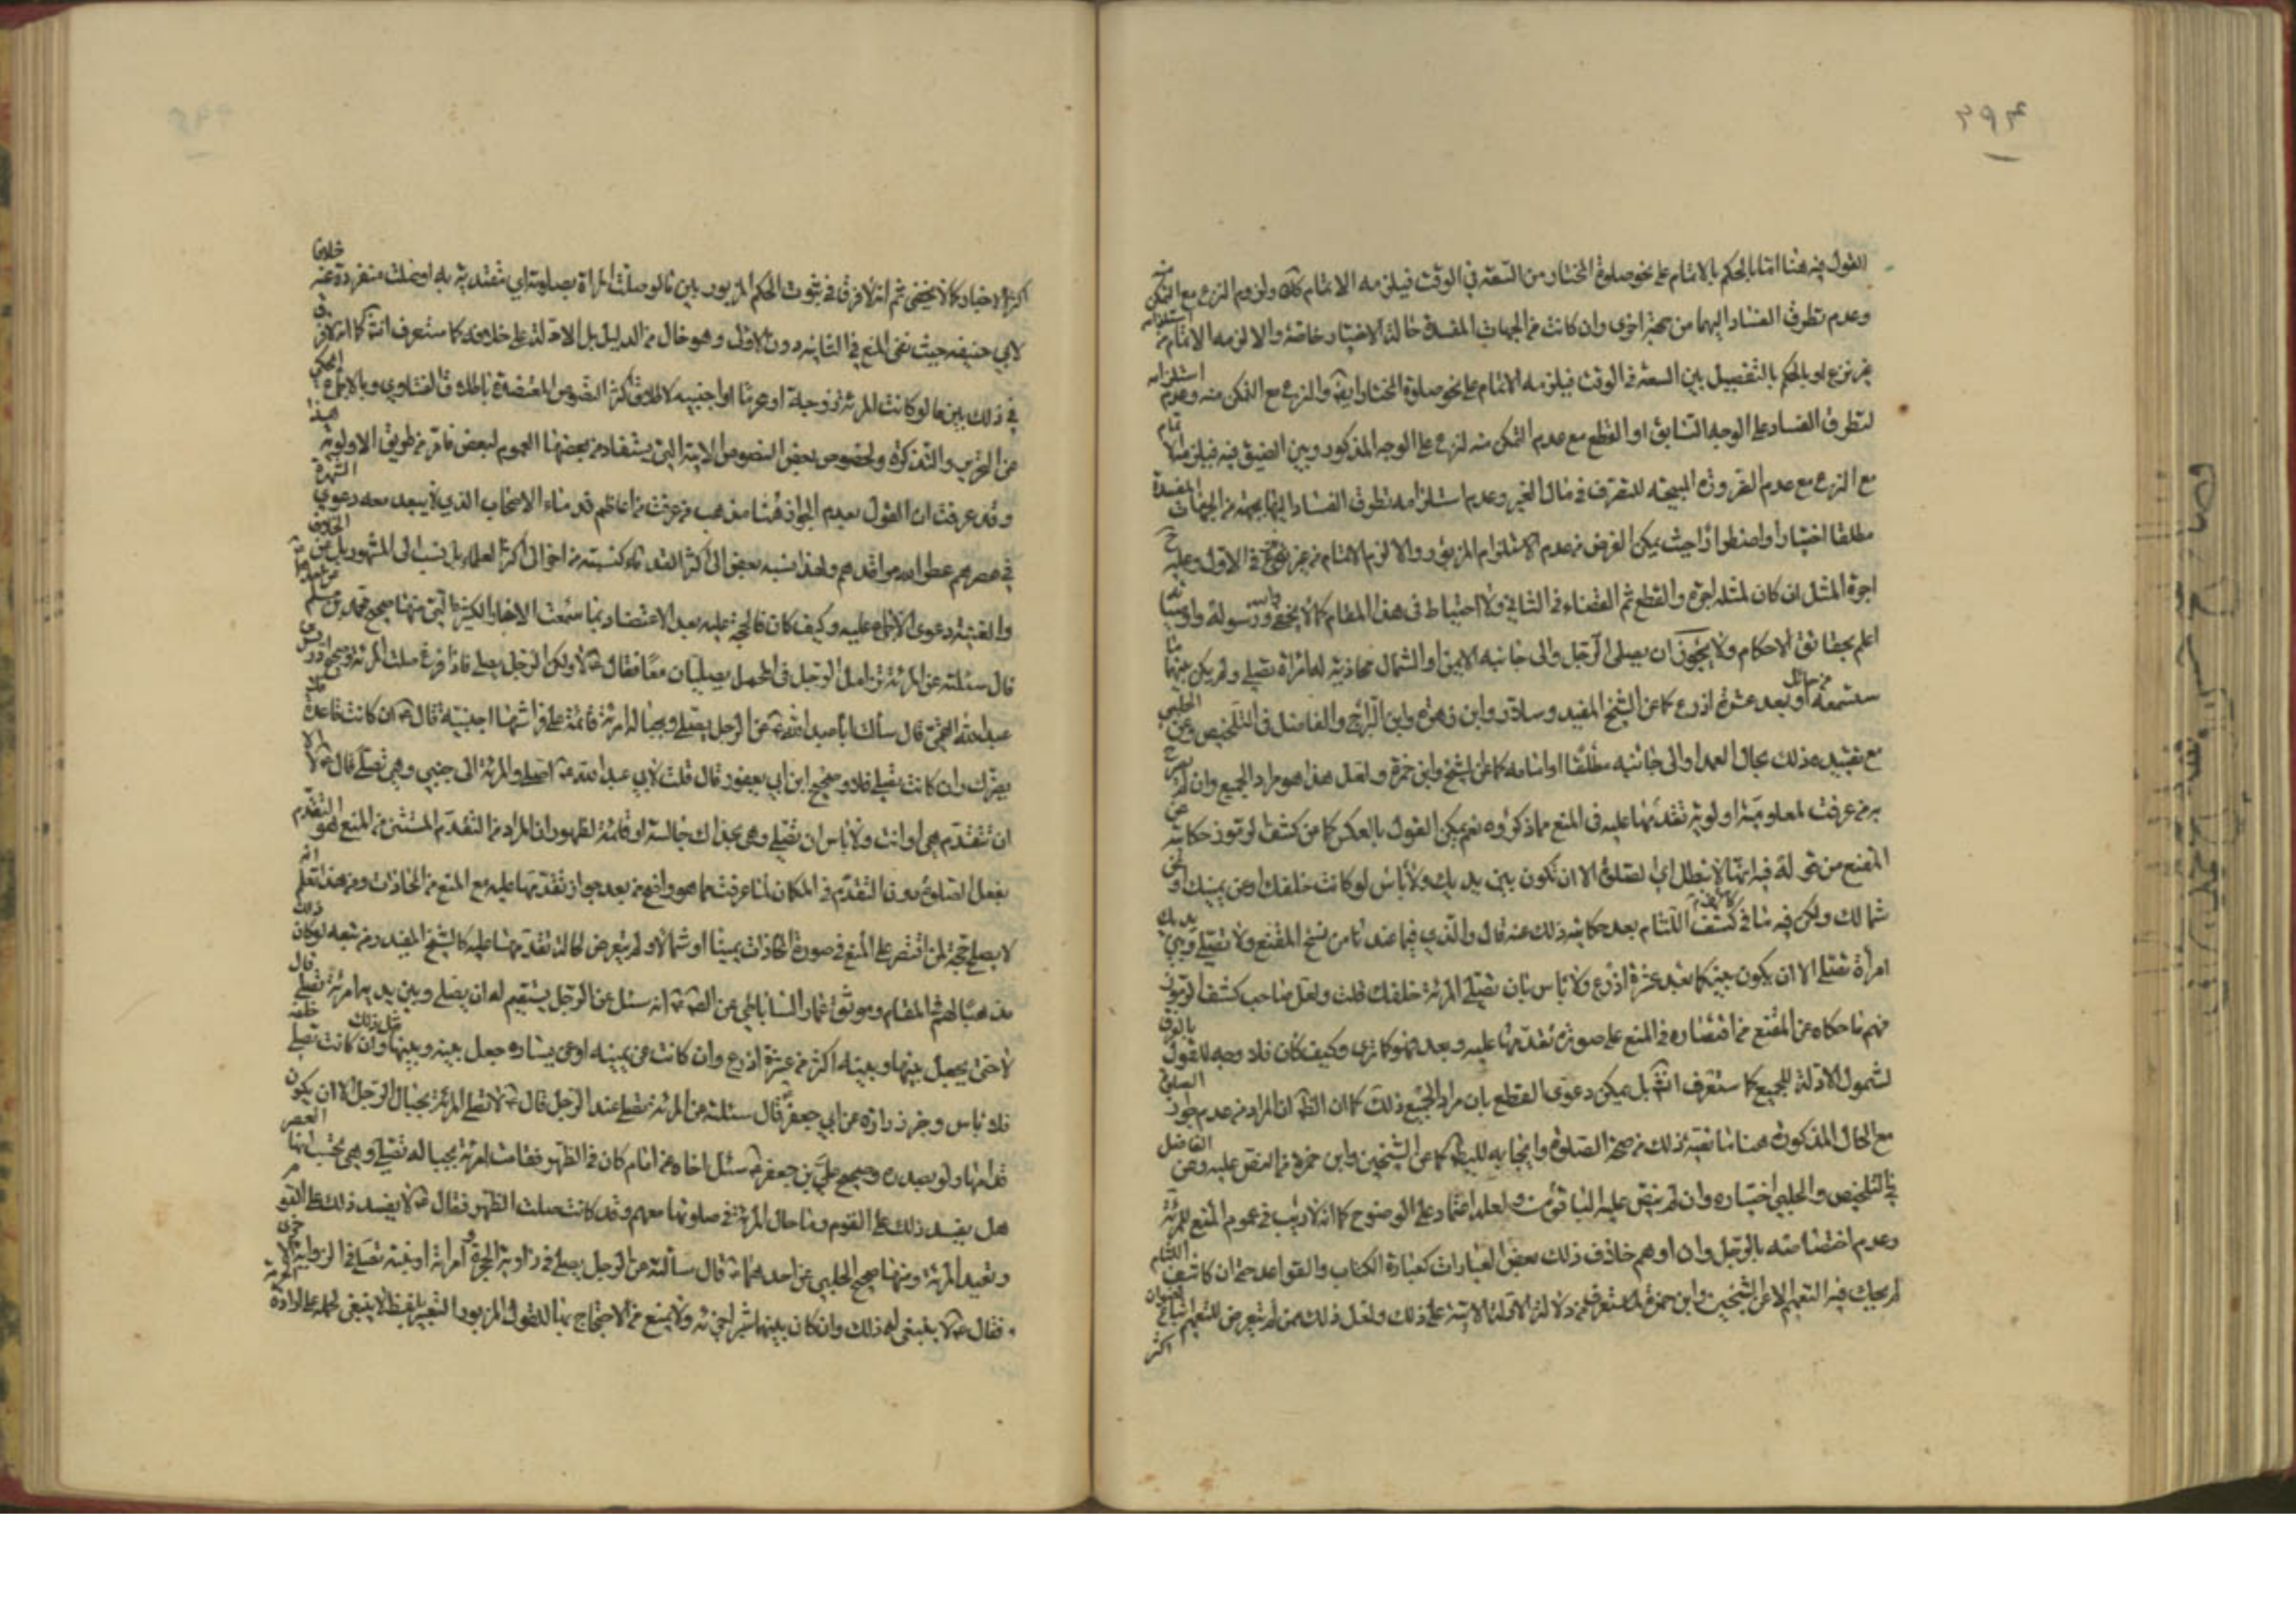 ٣٩٣
القول فيه هنا اما بالحكم بالاتمام على نحو صلوة المختار من السعة في الوقت فيلزمه الاتمام ولزوم النزع مع التمكن منه
وعدم تطرق الفساد اليهما من جهة اخرى وان كانت من الجهات المفسدة حالة الاختيار خاصة والا لزمه الاتمام من
غير نزع او بالحكم بالتفصيل بين السعة في الوقت فيلزمه الاتمام على نحو صلوة المختار ايضا والنزع مع التمكن منه وعدم استلزامه
لتطرق الفساد على الوجه السابق او القطع مع عدم التمكن منه لنزع على الوجه المذكور وبين الضيق فيه فيلزمه الاتمام
مع النزع مع عدم الضرورة المبيحة للتصرف في مال الغير وعدم استلزامه تطرق الفساد اليها بجهة من الجهات المفسدة
مطلقا اختيارا واضطرارا حيث يمكن الفرض من عدم الاستلزام المزبور والا لزم الاتمام من غير نزع في الاول وعليه
اجرة المثل ان كان لمثله اجرة والقطع ثم القضاء في الثاني ولا احتياط في هذا المقام كما لا يخفى والله ورسوله واوصيائه
اعلم بحقائق الاحكام ولا يجوز ان يصلي الرجل والى جانبه الايمن او الشمال محاذية له امراة تصلي ولم يكن بينهما ما
ستسمعه من حائل او بعد عشرة اذرع كما عن الشيخ المفيد وسلار وابن زهرة وابن البراج والفاضل في التلخيص وعن الحلبي
مع تقييده ذلك بحال العمد او الى جانبيه مطلقا او امامه كما عن الشيخ وابن حمزة ولعل هذا هو مراد الجميع وان لم يصرح
به من عرفت لمعلومية اولوية تقدمها عليه في المنع مما ذكروه نعم يمكن القول بالعكس كما من كشف الرموز حكايته عن
المقنع من قوله فيه انها لا تبطل اي الصلوة الا ان تكون بين يديك ولا باس لو كانت خلفك او عن يمينك او عن
شمالك ولكن فيه ما في كشف اللثام بعد حكايته ذلك عنه قال والذي فيما عندنا من نسخ المقنع ولا تصلي وبين يديك
امرأة تصلي الا ان يكون بينكما بعد عشرة اذرع ولا باس بان تصلي المرئة خلفك قلت ولعل صاحب كشف الرموز
فهم ما حكاه عن المقنع من اقتصاره في المنع على صورة تقدمها عليه وبعده هو كما ترى وكيف كان فلا وجه للقول بالفرق
لشمول الادلة للجميع كما ستعرف انش بل يمكن دعوى القطع بان مراد الجميع ذلك كما ان الظ ان المراد من عدم جواز الصلوة
مع الحال المذكورة هنا ما نقيضه ذلك من صحة الصلوة كما عن الشيخين وابن حمزة من النص عليه وعن الفاضل
في التلخيص والحلبي اختياره وان لم ينص عليه الباقون ولعله اعتماد على الوضوح كما انه لا ريب في عموم المنع للمرئة
وعدم اختصاصه بالرجل وان اوهم خلاف ذلك بعض العبارات كعبارة الكتاب والقواعد حتى ان كاشف اللثام
لم يحك فيه التعميم الا عن الشيخين وابن حمزة لما ستعرفه من دلالة الادلة الاتية على ذلك ولعل ذلك ممن لم يتعرض للتعميم
اكثر
اكثر الاخبار كما لا يخفى ثم انه لا فرق في ثبوت الحكم المزبور بين ما لو صلت المراة بصلوته اي مقتدية به او صلت منفردة عنه خلافا
لابي حنيفه حيث نفى المنع في الثانيه دون الاول وهو خال من الدليل بل الادلة على خلافه كما ستعرف انش كما انه لا فرق
في ذلك بين ما لو كانت المرئة زوجة او محرما او اجنبيه لاطلاق اكثر النصوص المعتضدة باطلاق الفتاوي وبالاجماع المحكي
عن التحرير والتذكرة ولخصوص بعض النصوص الاتية التي يستفاد من بعضها العموم لبعض ما مر من طريق الاولوية هذا
وقد عرفت ان القول بعدم الجواز هنا مذهب من عرفت من اعاظم قدماء الاصحاب الذي لا يبعد معه دعوى الشهرة
في عصرهم عطر الله مراقدهم ولهذا نسبه بعض الى اكثر القدماء كنسبته من اخر الى اكثر العلماء بل نسب الى المشهور بل عن الخلاف
والغنيه دعوى الاجماع عليه وكيف كان فالحجة عليه بعد الاعتضاد بما سمعت الاخبار الكثيرة التي منها صحيح محمد بن مسلم
قال سئلته عن المرئة تزامل الرجل في المحمل يصليان معا فقال لا ولكن الرجل يصلي فاذا فرغ صلت المرئة وصحيح ادريس بن
عبد الله القمي قال سألت ابا عبد الله عن الرجل يصلي وبحياله امرئة قائمة على فراشها اجنبية قال ان كانت قاعدة فلا
يضرك وان كانت تصلي فلا وصحيح ابن ابي يعفور قال قلت لابي عبد الله اصلي والمرئة الى جنبي وهي تصلي قال لا الا
ان تتقدم هي او انت ولا باس ان تصلي وهي بحذاك جالسة او قائمة لظهور ان المراد من التقدم المستثنى من المنع هو التقدم
بفعل الصلوة دون التقدم في المكان لما عرفت مما هو واضح من بعد جواز تقدمها عليه مع المنع من المحاذات ومن هذا تعلم انه
لا يصلح حجة لمن اقتصر على المنع في صورة المحاذات يمينا او شمالا ولم يتعرض لحالة تقدمها عليه كالشيخ المفيد ومن تبعه لو كان ذلك
مذهبا لهم في المقام وموثق عمار الساباطي عن الص انه سئل عن الرجل يستقيم له ان يصلي وبين يديه امرئة تصلي قال
لا حتى يجعل بينها وبينه اكثر من عشرة اذرع وان كانت عن يمينه او عن يساره جعل بينه وبينها مثل ذلك وان كانت تصلي خلفه
فلا باس وخبر زرارة عن ابي جعفر قال سئلته عن المرئة تصلي عند الرجل قال لا تصلي المرئة بحيال الرجل الا ان يكون
قدامها ولو بصدره وصحيح علي بن جعفر سئل اخاه من امام كان في الظهر فقامت امرئة بحياله تصلي وهي تحسب انها العصر
هل يفسد ذلك على القوم وما حال المرئة في صلوتها معهم وقد كانت صلت الظهر فقال لا يفسد ذلك على القوم
وتعيد المرئة ومنها صحيح الحلبي عن احدهما قال سألته عن الرجل يصلي في زاوية الحجرة وامراته او بنته تصلي في الزاوية الاخرى
فقال لا ينبغي له ذلك وان كان بينهما شبر اجزئه ولا يمنع من الاحتجاج بها للقول المزبور التعبير بلفظ لا ينبغي لحمله على ارادة الحرمة